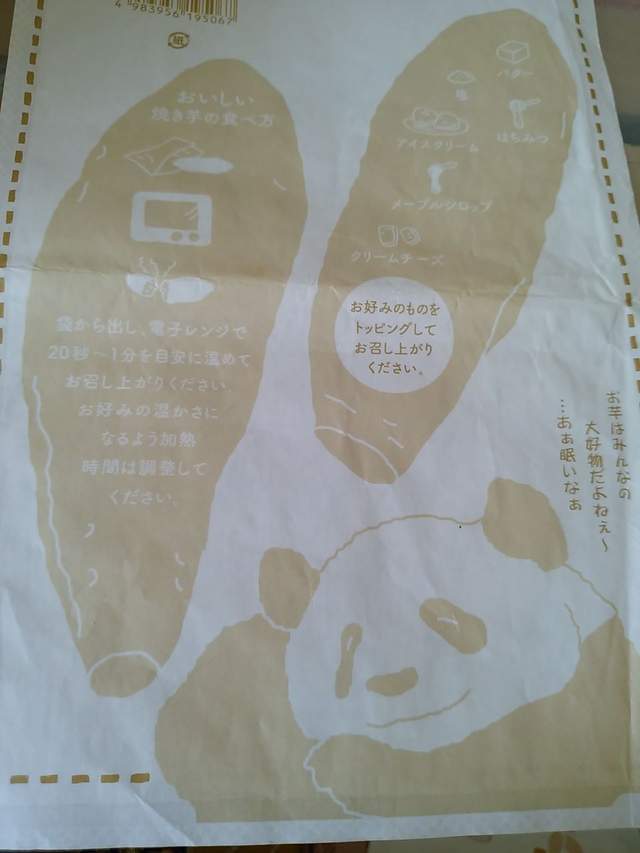 4 983956 195067
紙
おいしい
焼き芋の食べ方
袋から出し、電子レンジで
20秒～1分を目安に温めて
お召し上がりください。
お好みの温かさに
なるよう加熱
時間は調整して
ください。
バター
塩
はちみつ
アイスクリーム
メープルシロップ
クリームチーズ
お好みのものを
トッピングして
お召し上がり
ください。
お芋はみんなの
大好物だよねぇ～
…あぁ眠いなぁ